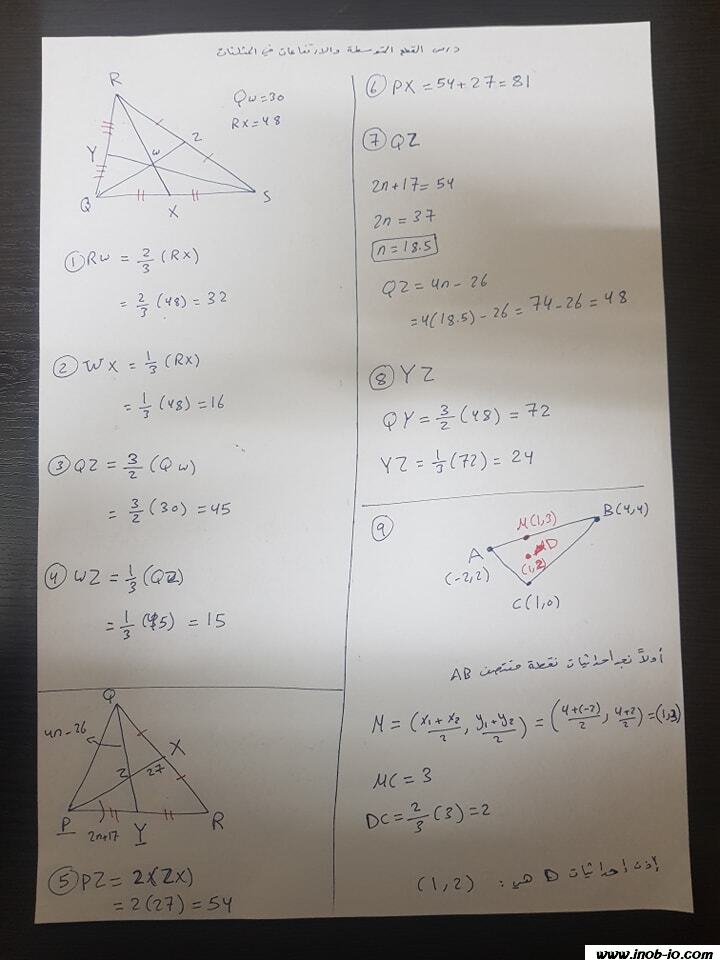 درس القطع المتوسطة والارتفاعات في المثلثات
R
Qw=30
Rx=48
Y
Z
w
Q
X
S
① Rw = 2/3 (Rx)
= 2/3 (48) = 32
② WX = 1/3 (RX)
= 1/3 (48) = 16
③ QZ = 3/2 (Qw)
= 3/2 (30) = 45
④ WZ = 1/3 (QZ)
= 1/3 (45) = 15
Q
4n-26
X
Z
27
P
2n+17
Y
R
⑤ PZ = 2(ZX)
= 2(27) = 54
⑥ PX = 54+27 = 81
⑦ QZ
2n+17 = 54
2n = 37
n = 18.5
QZ = 4n - 26
= 4(18.5) - 26 = 74 - 26 = 48
⑧ YZ
QY = 3/2 (48) = 72
YZ = 1/3 (72) = 24
⑨
M(1,3)
B(4,4)
A
(-2,2)
D
(1,2)
C(1,0)
أولاً نجد احداثيات نقطة منتصف AB
M = (x₁+x₂/2 , y₁+y₂/2) = (4+(-2)/2 , 4+2/2) = (1,3)
MC = 3
DC = 2/3 (3) = 2
إذن احداثيات D هي: (1,2)
www.inob-io.com